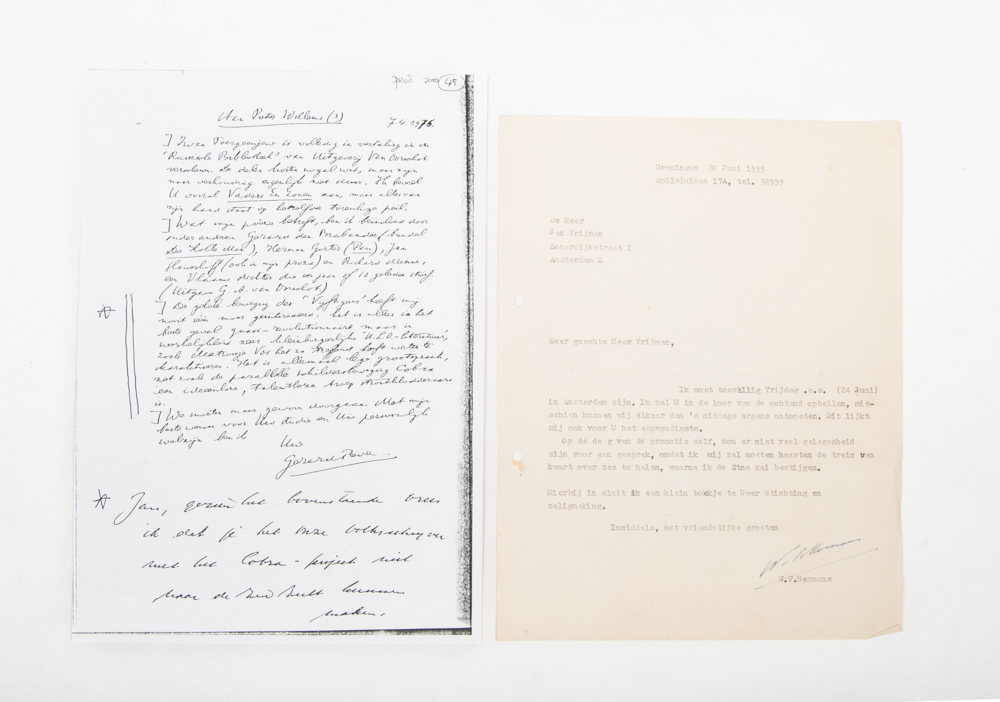 45
Aan Peter Willems (3)
7.4.1976.
] Iwan Toergenjew is volledig in vertaling in de
'Russische Bibliotheek' van Uitgeverij Van Oorschot
verschenen. De delen kosten nogal wat, maar zijn
naar verhouding eigenlijk niet duur. Ik beveel
U vooral Vaders En Zonen aan, maar alles van
zijn hand staat op hetzelfde torenhoge peil.
] Wat mijn poëzie betreft, ben ik beïnvloed door
onder anderen Gerard den Brabander (bundel
De Holle Man), Herman Gorter (Pan), Jan
Slauerhoff (ook in mijn proza) en Richard Minne,
een Vlaamse dichter die een jaar of 10 geleden stierf.
(Uitgave G. A. van Oorschot)
] De gehele beweging der 'Vijftigers' heeft mij
nooit één moer geïnteresseerd: het is alles in het
beste geval quasi-revolutionair maar in
werkelijkheid zeer kleinburgerlijke 'u.l.o.-literatuur',
zoals Mevrouw Vos het zo treffend heeft weten te
karakteriseren. Het is allemaal lege grootspraak,
net zoals de parallelle schildersbeweging Cobra
een ideeënloze, talentloze troep
is.
] We moeten maar gewoon doorgaan. Met mijn
beste wensen voor Uw studie en Uw persoonlijk
welzijn ben ik
Uw
Gerard Reve.
Jan, gezien het bovenstaande vrees
ik dat je het onze volksschrijver
met het Cobra-project niet
naar de zin zult kunnen
maken.
Groningen 20 Juni 1955
Spilsluizen 17A, tel. 32959
De Heer
Jan Vrijman
Zomerdijkstraat 2
Amsterdam Z
Zeer geachte Heer Vrijman,
Ik moet toevallig Vrijdag .e.s. (24 Juni)
in Amsterdam zijn. Ik zal U in de loop van de ochtend opbellen, mis-
schien kunnen wij elkaar dan 's middags ergens ontmoeten. Dit lijkt
mij ook voor U het eenvoudigste.
Op de da g van de promotie zelf, zou er niet veel gelegenheid
zijn voor een gesprek, omdat ik mij zal moeten haasten de trein van
kwart over zes te halen, waarna ik de Etna zal bestijgen.
Hierbij in sluit ik een klein boekje te Uwer stichting en
zaligmaking.
Inmiddels, met vriendelijke groeten
W.F.Hermans